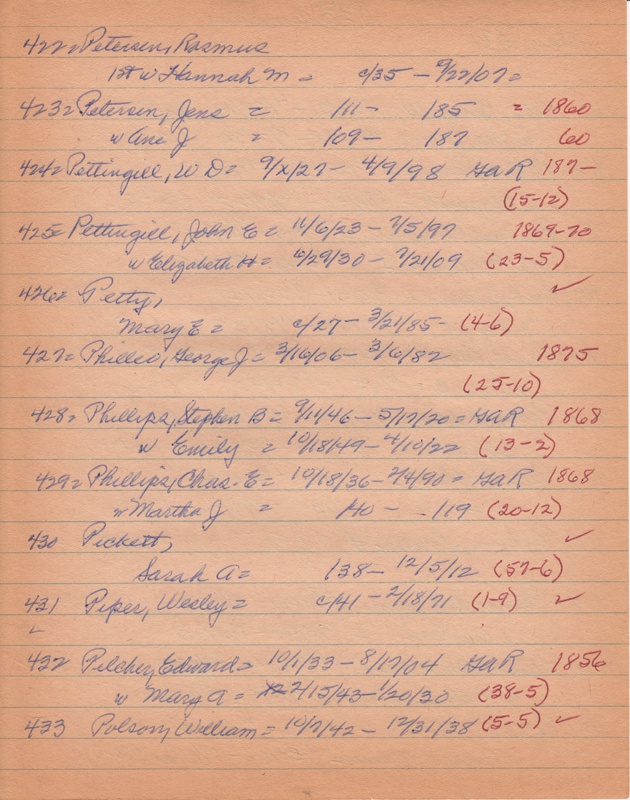 422= Petersen, Rasmus
1st w Hannah M = c/35 - 9/22/07=
423= Petersen, Jens = /11- /85 = 1860
w Ane J = /09- /87 60
424= Pettingill, W D= 9/x/27- 4/9/98 GaR 187-
(15-12)
425= Pettingill, John E = 11/6/23 - 7/5/97 1869-70
w Elizabeth H= /29/30 - 7/21/09 (23-5)
426= Petty, ✓
Mary E = c/27- 3/21/85- (4-6)
427= George J= 3/16/06- 3/6/87 1875
(25-10)
428= Phillips, Stephen B= 9/11/46 - 5/17/20= GaR 1868
w Emily = 10/18/49- 4/10/22 (13-2)
429= Phillips, Chas. E= 10/18/36- 2/4/90= GaR 1868
w Martha J = /40 - . /19 (20-12)
430 Pickett, ✓
Sarah A= /38- 12/5/12 (57-6)
431 Piper, Wesley= c/41 - 2/18/71 (1-9) ✓
432 Pilcher, Edward= 10/1/33 - 8/17/04 GaR 1856
w Mary A = 2/15/43- 1/20/30 (38-5)
433 Polson, William= 10/2/42 - 12/31/38 (5-5) ✓